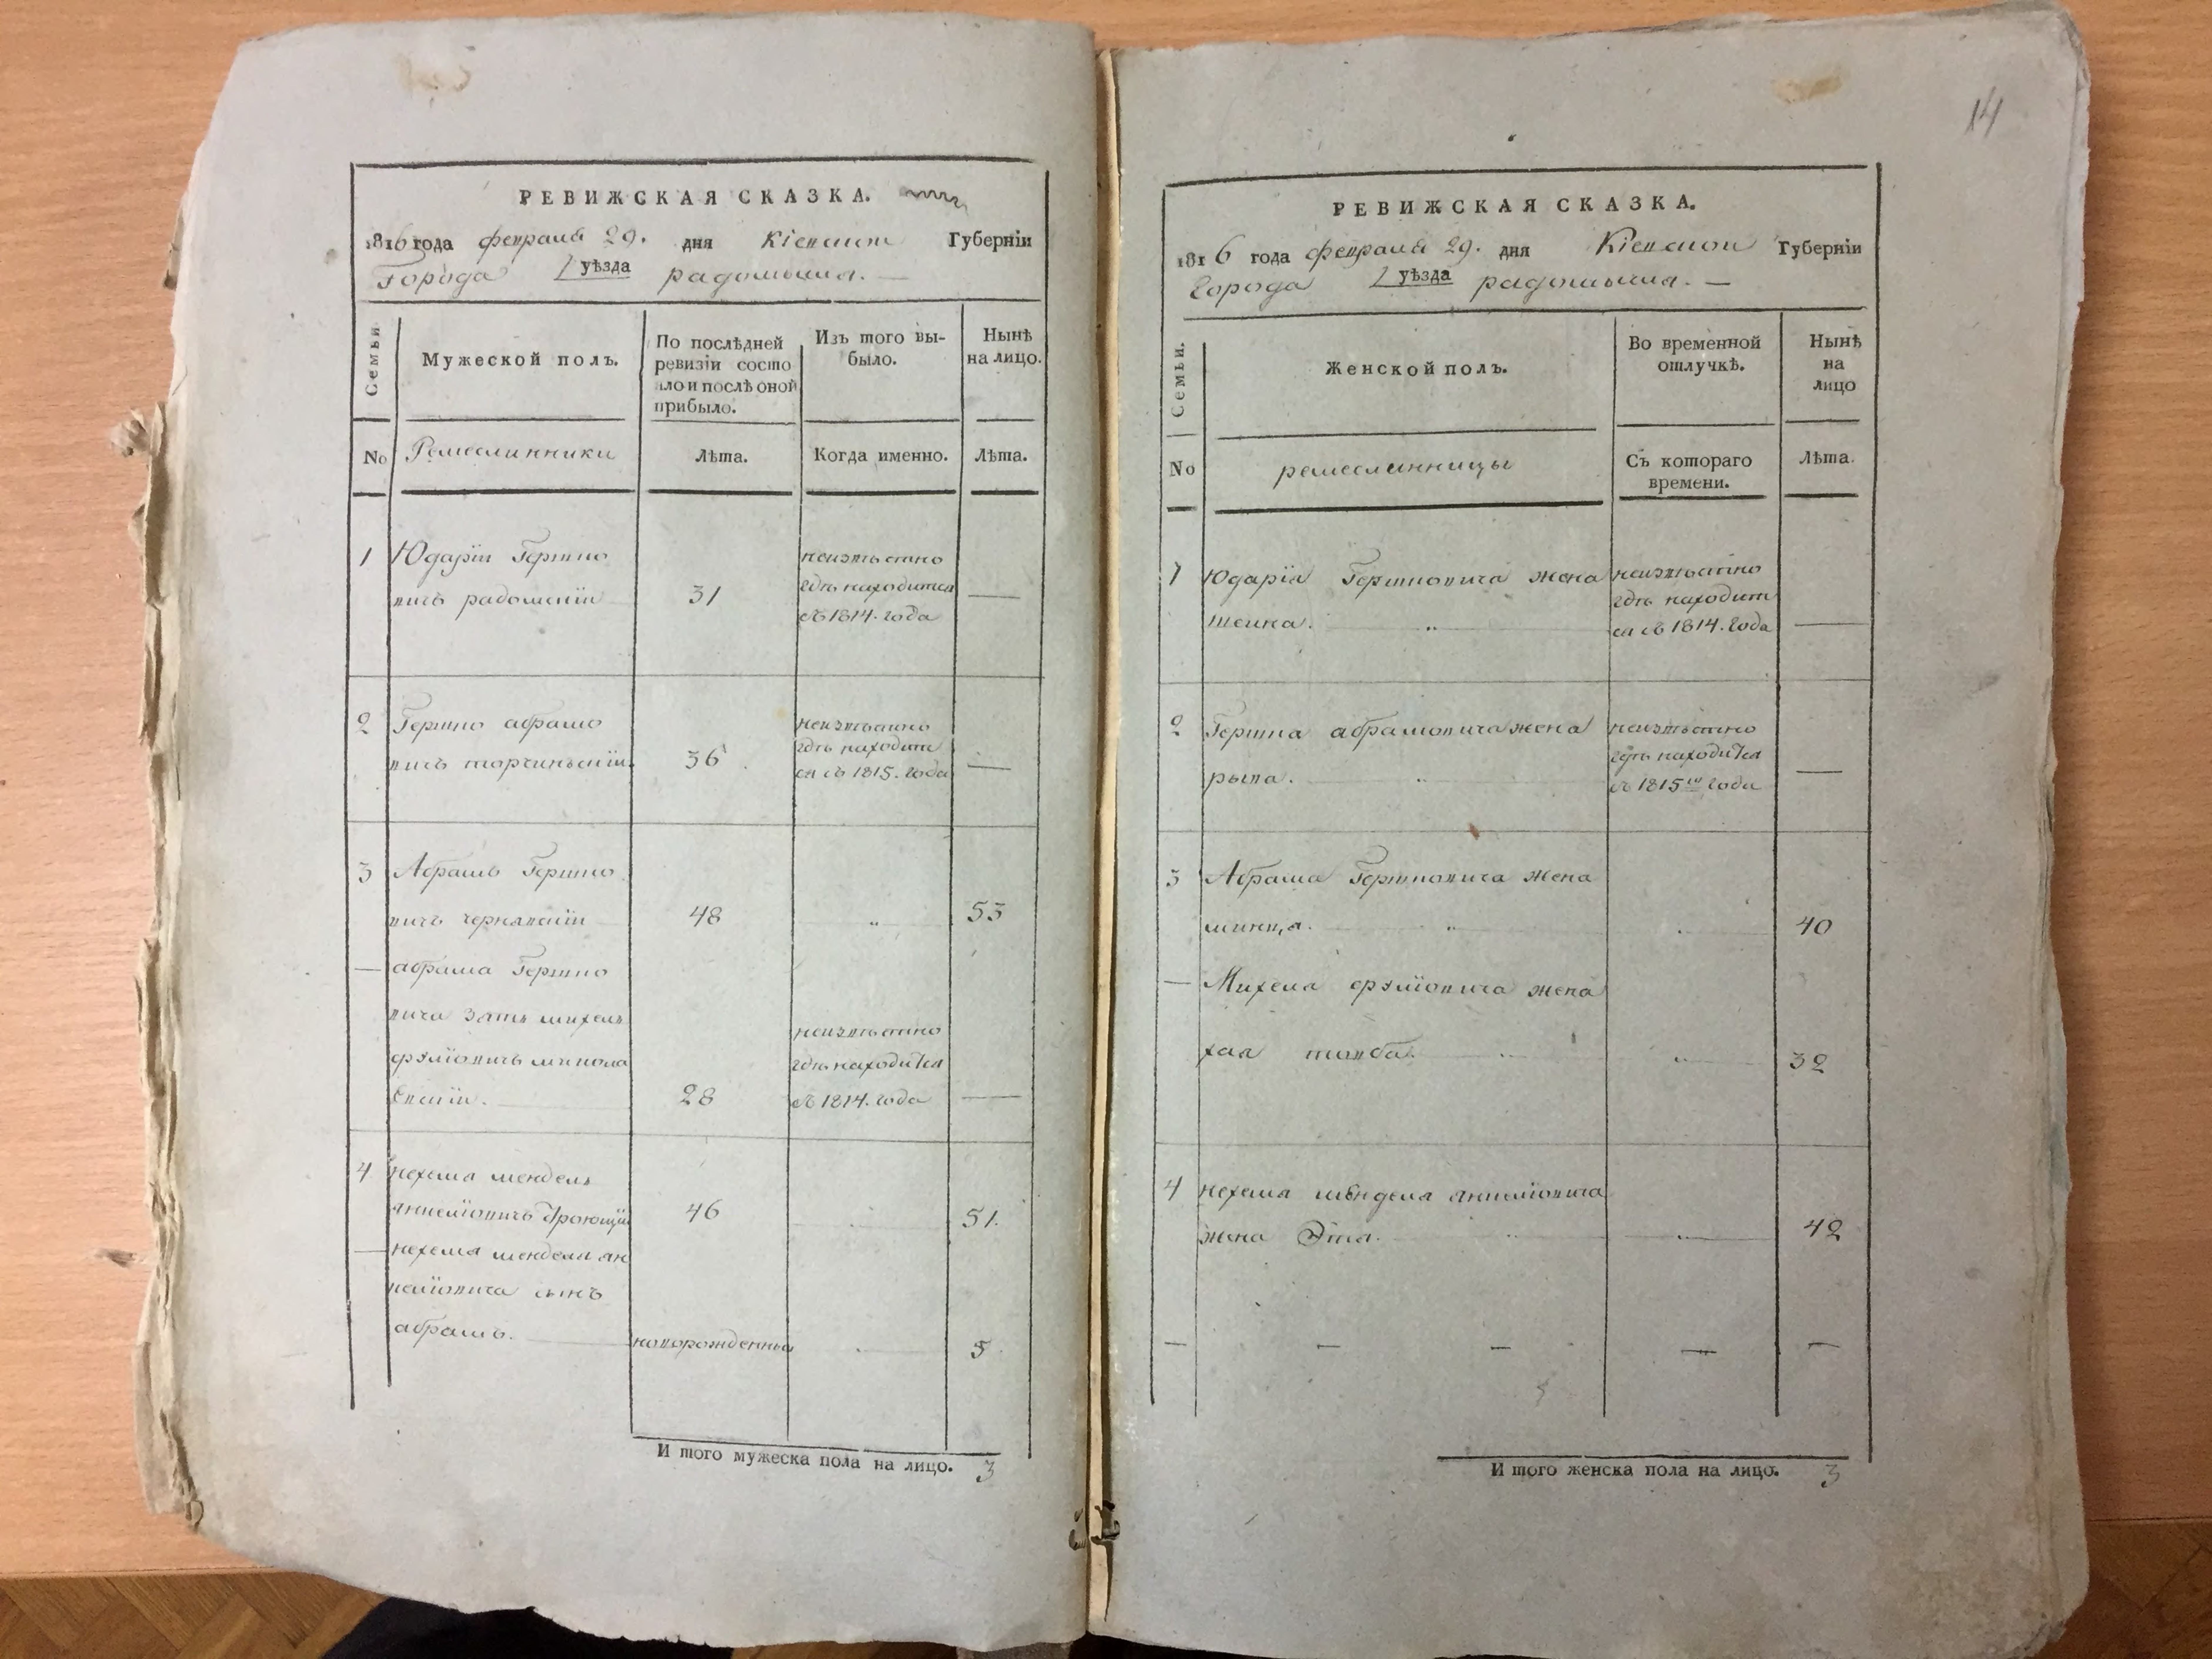 РЕВИЖСКАЯ СКАЗКА.
1816 года февраля 29. дня Кіевской Губерніи
Города уѣзда радомысля.
Семьи.
Мужеской полъ.
По послѣдней
ревизіи состо
яло и послѣ оной
прибыло.
Изъ того вы-
было.
Нынѣ
на лицо.
No
Ремеслинники
Лѣта.
Когда именно.
Лѣта.
1 Юдарій Гершко
вичъ радомскій
31
неизвѣстно
гдѣ находится
съ 1814. года
—
2 Гершко абрамо
вичъ торчинскій
36
неизвѣстно
гдѣ находит
ся съ 1815. года
—
3 Абрамъ Гершко
вичъ чернявскій
48
53
— абрама Гершко
вича зять михель
28
неизвѣстно
гдѣ находится
съ 1814. года
—
4 нехема мендель
46
51.
— нехема менделя ян
келіовича сынъ
абрамъ.
новорожденный
5
И того мужеска пола на лицо. 3
14
РЕВИЖСКАЯ СКАЗКА.
1816 года февраля 29. дня Кіевской Губерніи
Города уѣзда радомысля.
Семьи.
Женской полъ.
Во временной
отлучкѣ.
Нынѣ
на
лицо
No
ремеслинницы
Съ котораго
времени.
Лѣта.
1 Юдарія Гершковича жена
неизвѣстно
гдѣ находит
ся съ 1814. года
—
2 Гершка абрамовича жена
рыва.
неизвѣстно
гдѣ находится
съ 1815го года
—
3 Абрама Гершковича жена
40
— Михеля жена
хая товба.
32
4 нехема мендела янкелiовича
жена Этя.
42
— — — — —
И того женска пола на лицо. 3